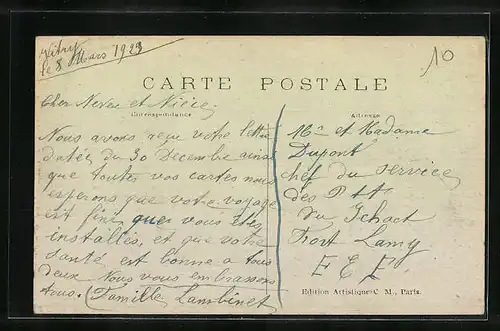 Vitry
le 8 Mars 1923
10
CARTE POSTALE
Cher Neveu et Nièce,
Correspondance
Adresse
Nous avons reçu votre lettre
datée du 30 Decembre ainsi
que toutes vos cartes nous
esperons que votre voyage
est fini que vous êtes
installés, et que votre
santé est bonne a tous
deux Nous vous embrassons
tous. Famille Lambinet
Mr et Madame
Dupont
chef du service
des P T T
du Tchact
Fort Lamy
E E F
Edition Artistique C. M., Paris.